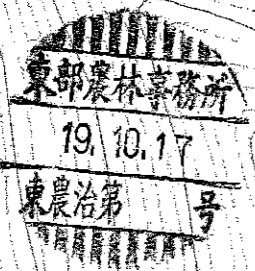 東部農林事務所
19.10.17
東農治第 号